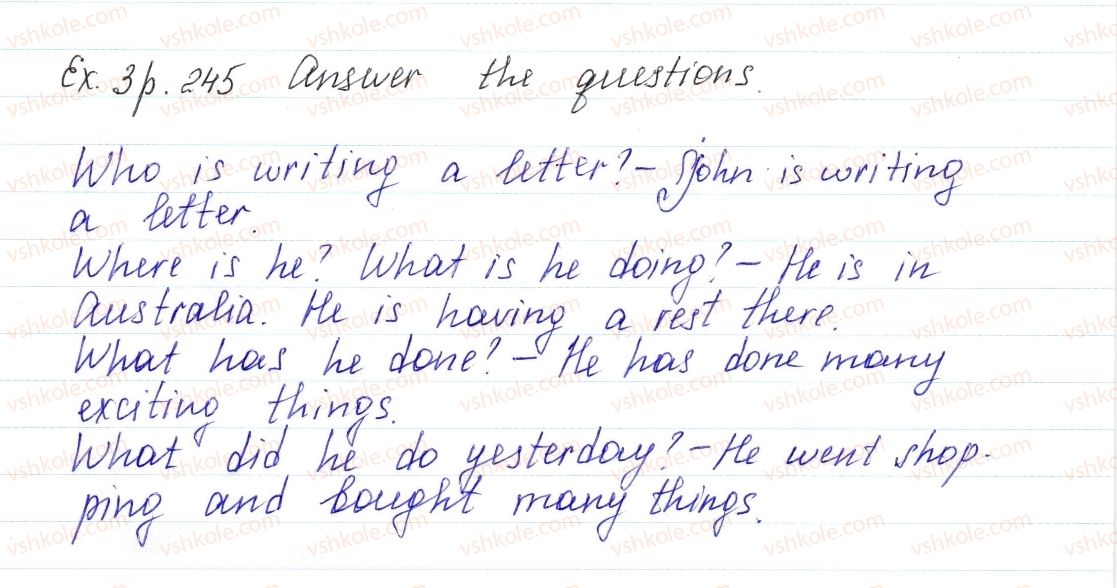 Ex. 3 p. 245 Answer the questions.
Who is writing a letter? – John is writing
a letter.
Where is he? What is he doing? – He is in
Australia. He is having a rest there.
What has he done? – He has done many
exciting things.
What did he do yesterday? – He went shop-
ping and bought many things.
vshkole.com